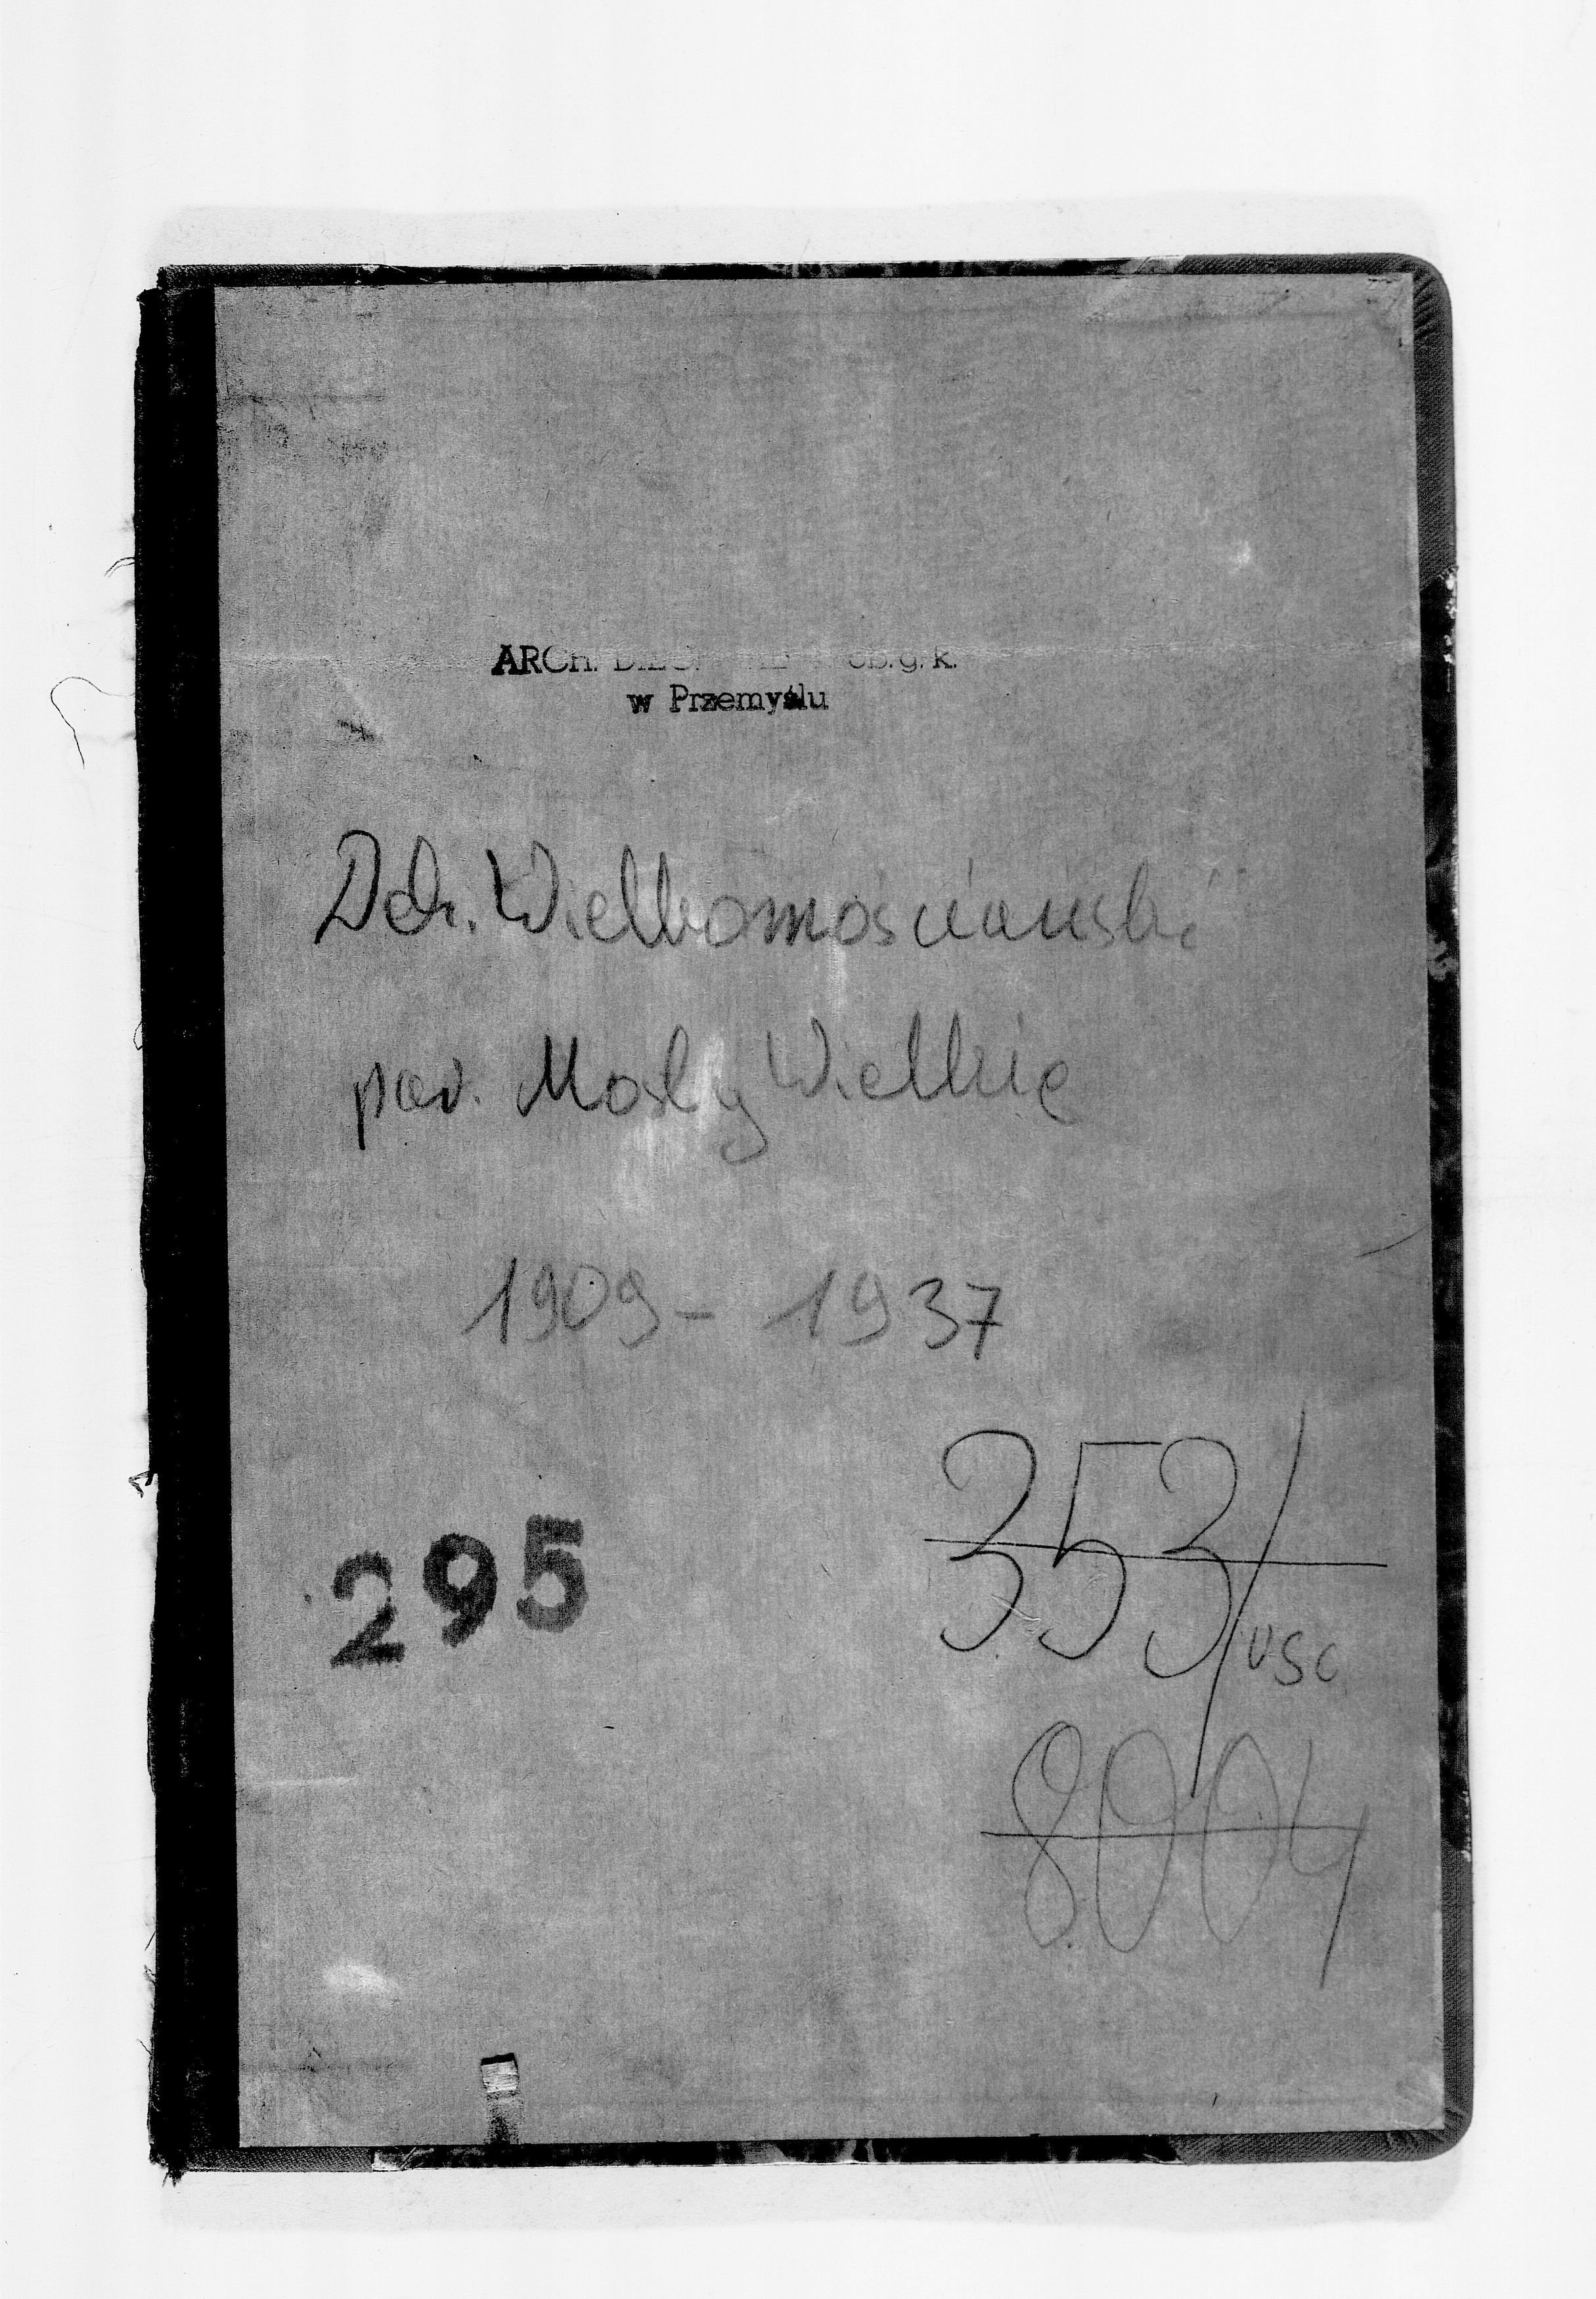 ARCH. ob. g. k.
w Przemyślu
Dek. Wielkomościański
par. Mosty Wielkie
1909 - 1937
295
353/USC
8004